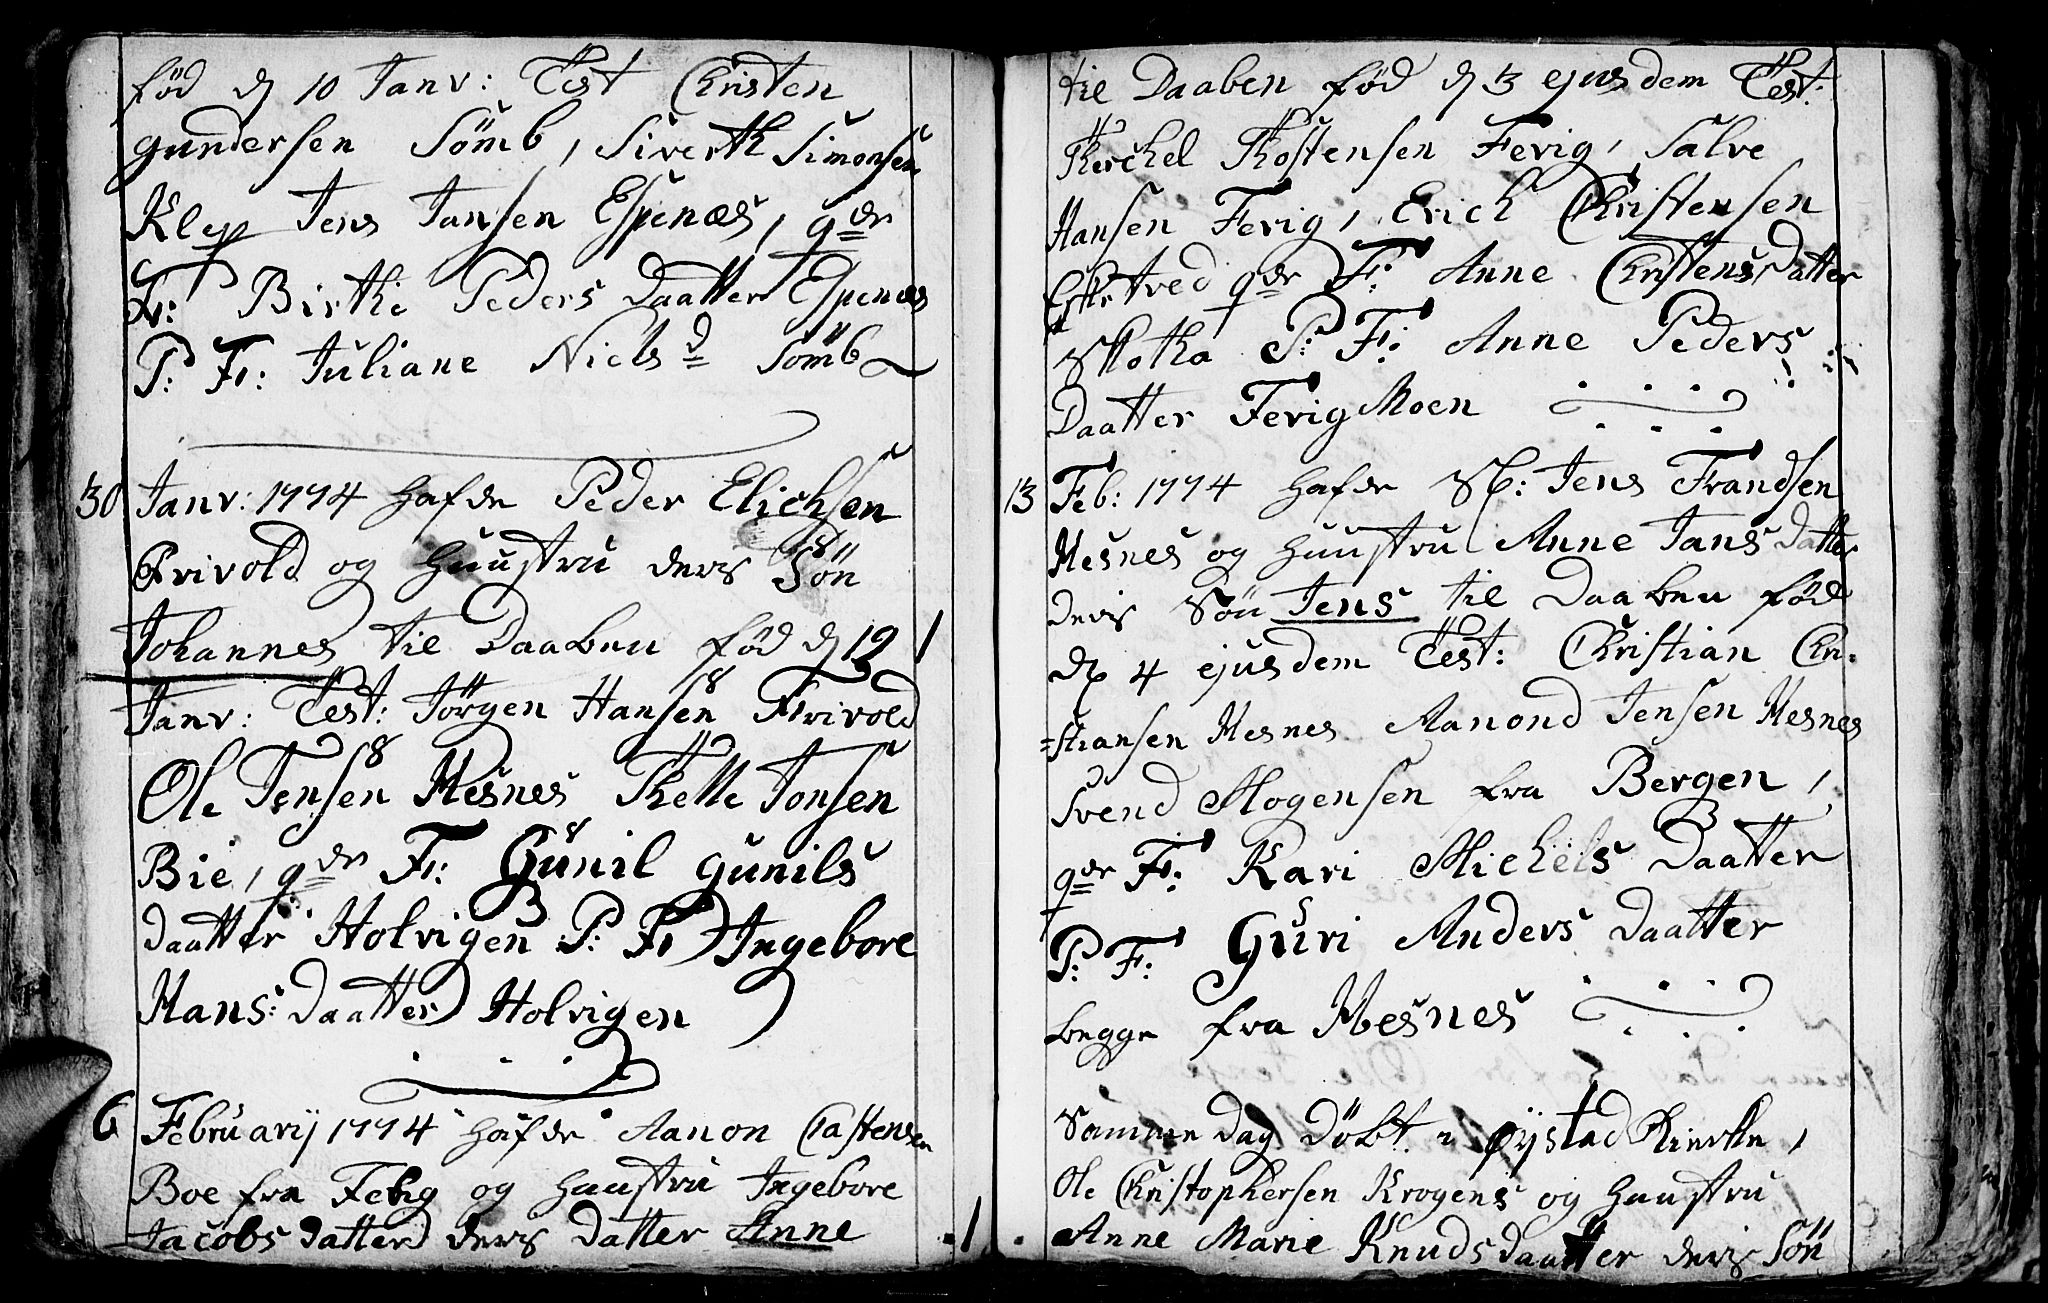 fød d 10 Janv: Test Christen
gundersen Sömb, Siverth Simonsen
Klep Jens Jansen Espenæs, qvde
Fr: Birthe Peders Daatter Espenæs
P: Fr: Juliane Niels d Sömb
30 Janv: 1774 hafde Peder Elichsen
Frivold og huustru deris Sön
Johannes til Daaben fød d 19 1
Janv: Test: Jörgen Hansen Frivold
Ole Jensen Hesnes Thelle Jonsen
Bie, qvde Fr: Gunil gunils
daatter Holvigen P: Fr Ingebore
Hans: Daatter Holvigen
6 Februarij 1774 hafde Aanon Castensen
Boe fra Fevig og huustru Ingebore
Jacobs datter deris datter Anne 1
til Daaben fød d 3 ejusdem Test:
Therchel Thostensen Fevig, Salve
Hansen Fevig, Erich Christensen
tved qvde Fr: Anne Christens Datter
Slotha P: Fr: Anne Peders
Daatter Fevig Moen
13 Feb: 1774 hafde Sr: Jens Frandsen
Hesnes og huustru Anne Jans datter
deris Sön Jens til Daaben fød
d 4 ejusdem Test: Christian Chri-
=stiansen Hesnes Aanond Jensen Hesnes
Svend Mogensen fra Bergen,
qvde Fr: Kari Michels Daatter
P: Fr: Guri Anders Daatter
begge fra Hesnes
Samme dag Döbt i Øystad Kirke,
Ole Christophersen Krogens og huustru
Anne Marie Knuds daatter deris Sön